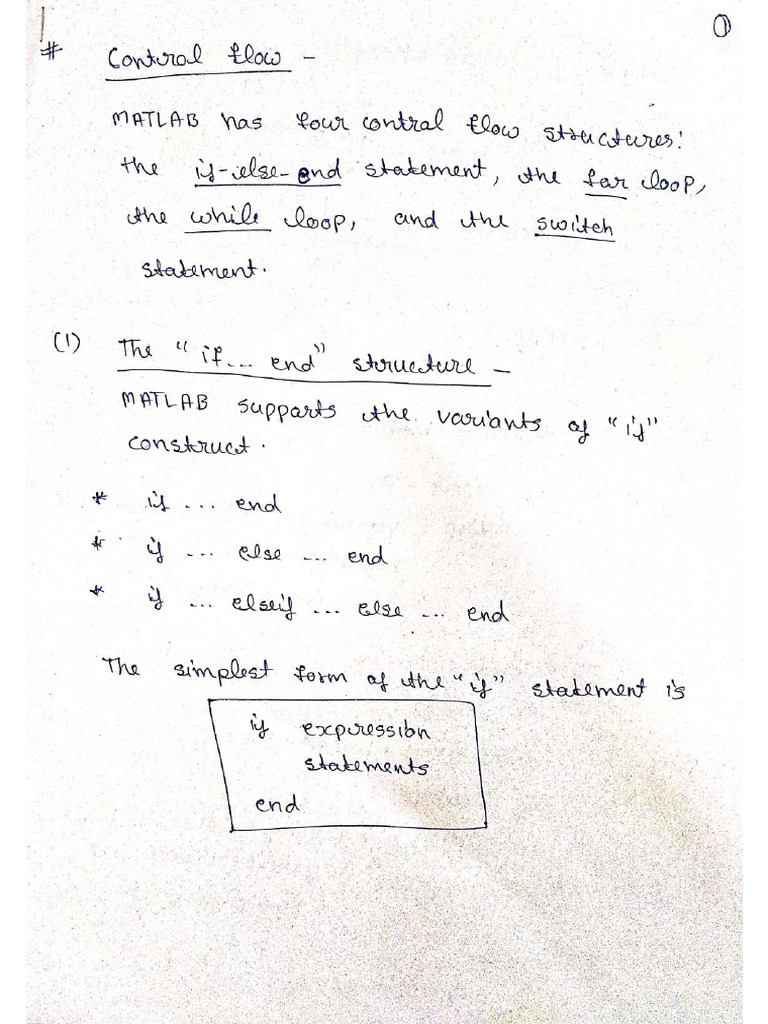 ①
# Control flow -
MATLAB has four control flow structures:
the if-else-end statement, the for loop,
the while loop, and the switch
statement.
(1) The "if... end" structure -
MATLAB supports the variants of "if"
construct.
* if ... end
* if ... else ... end
* if ... elseif ... else ... end
The simplest form of the "if" statement is
if expression
statements
end